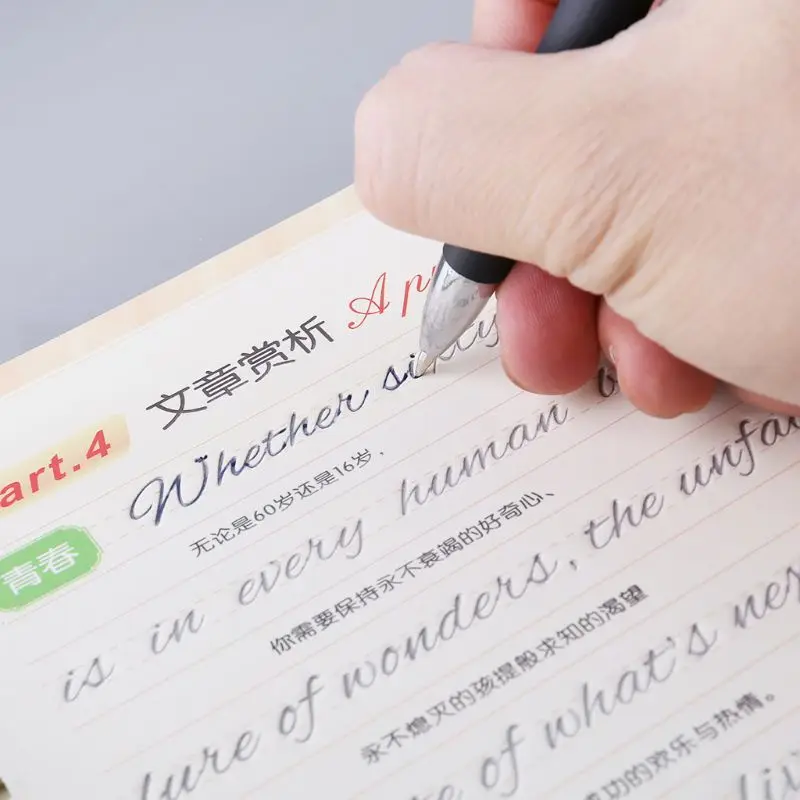 art.4 文章赏析 Ap
青春 Whether sixty
无论是60岁还是16岁，
is in every human
你需要保持永不衰竭的好奇心、
lure of wonders, the unfai
永不熄灭的孩提般求知的渴望
of what's nex
成功的欢乐与热情。